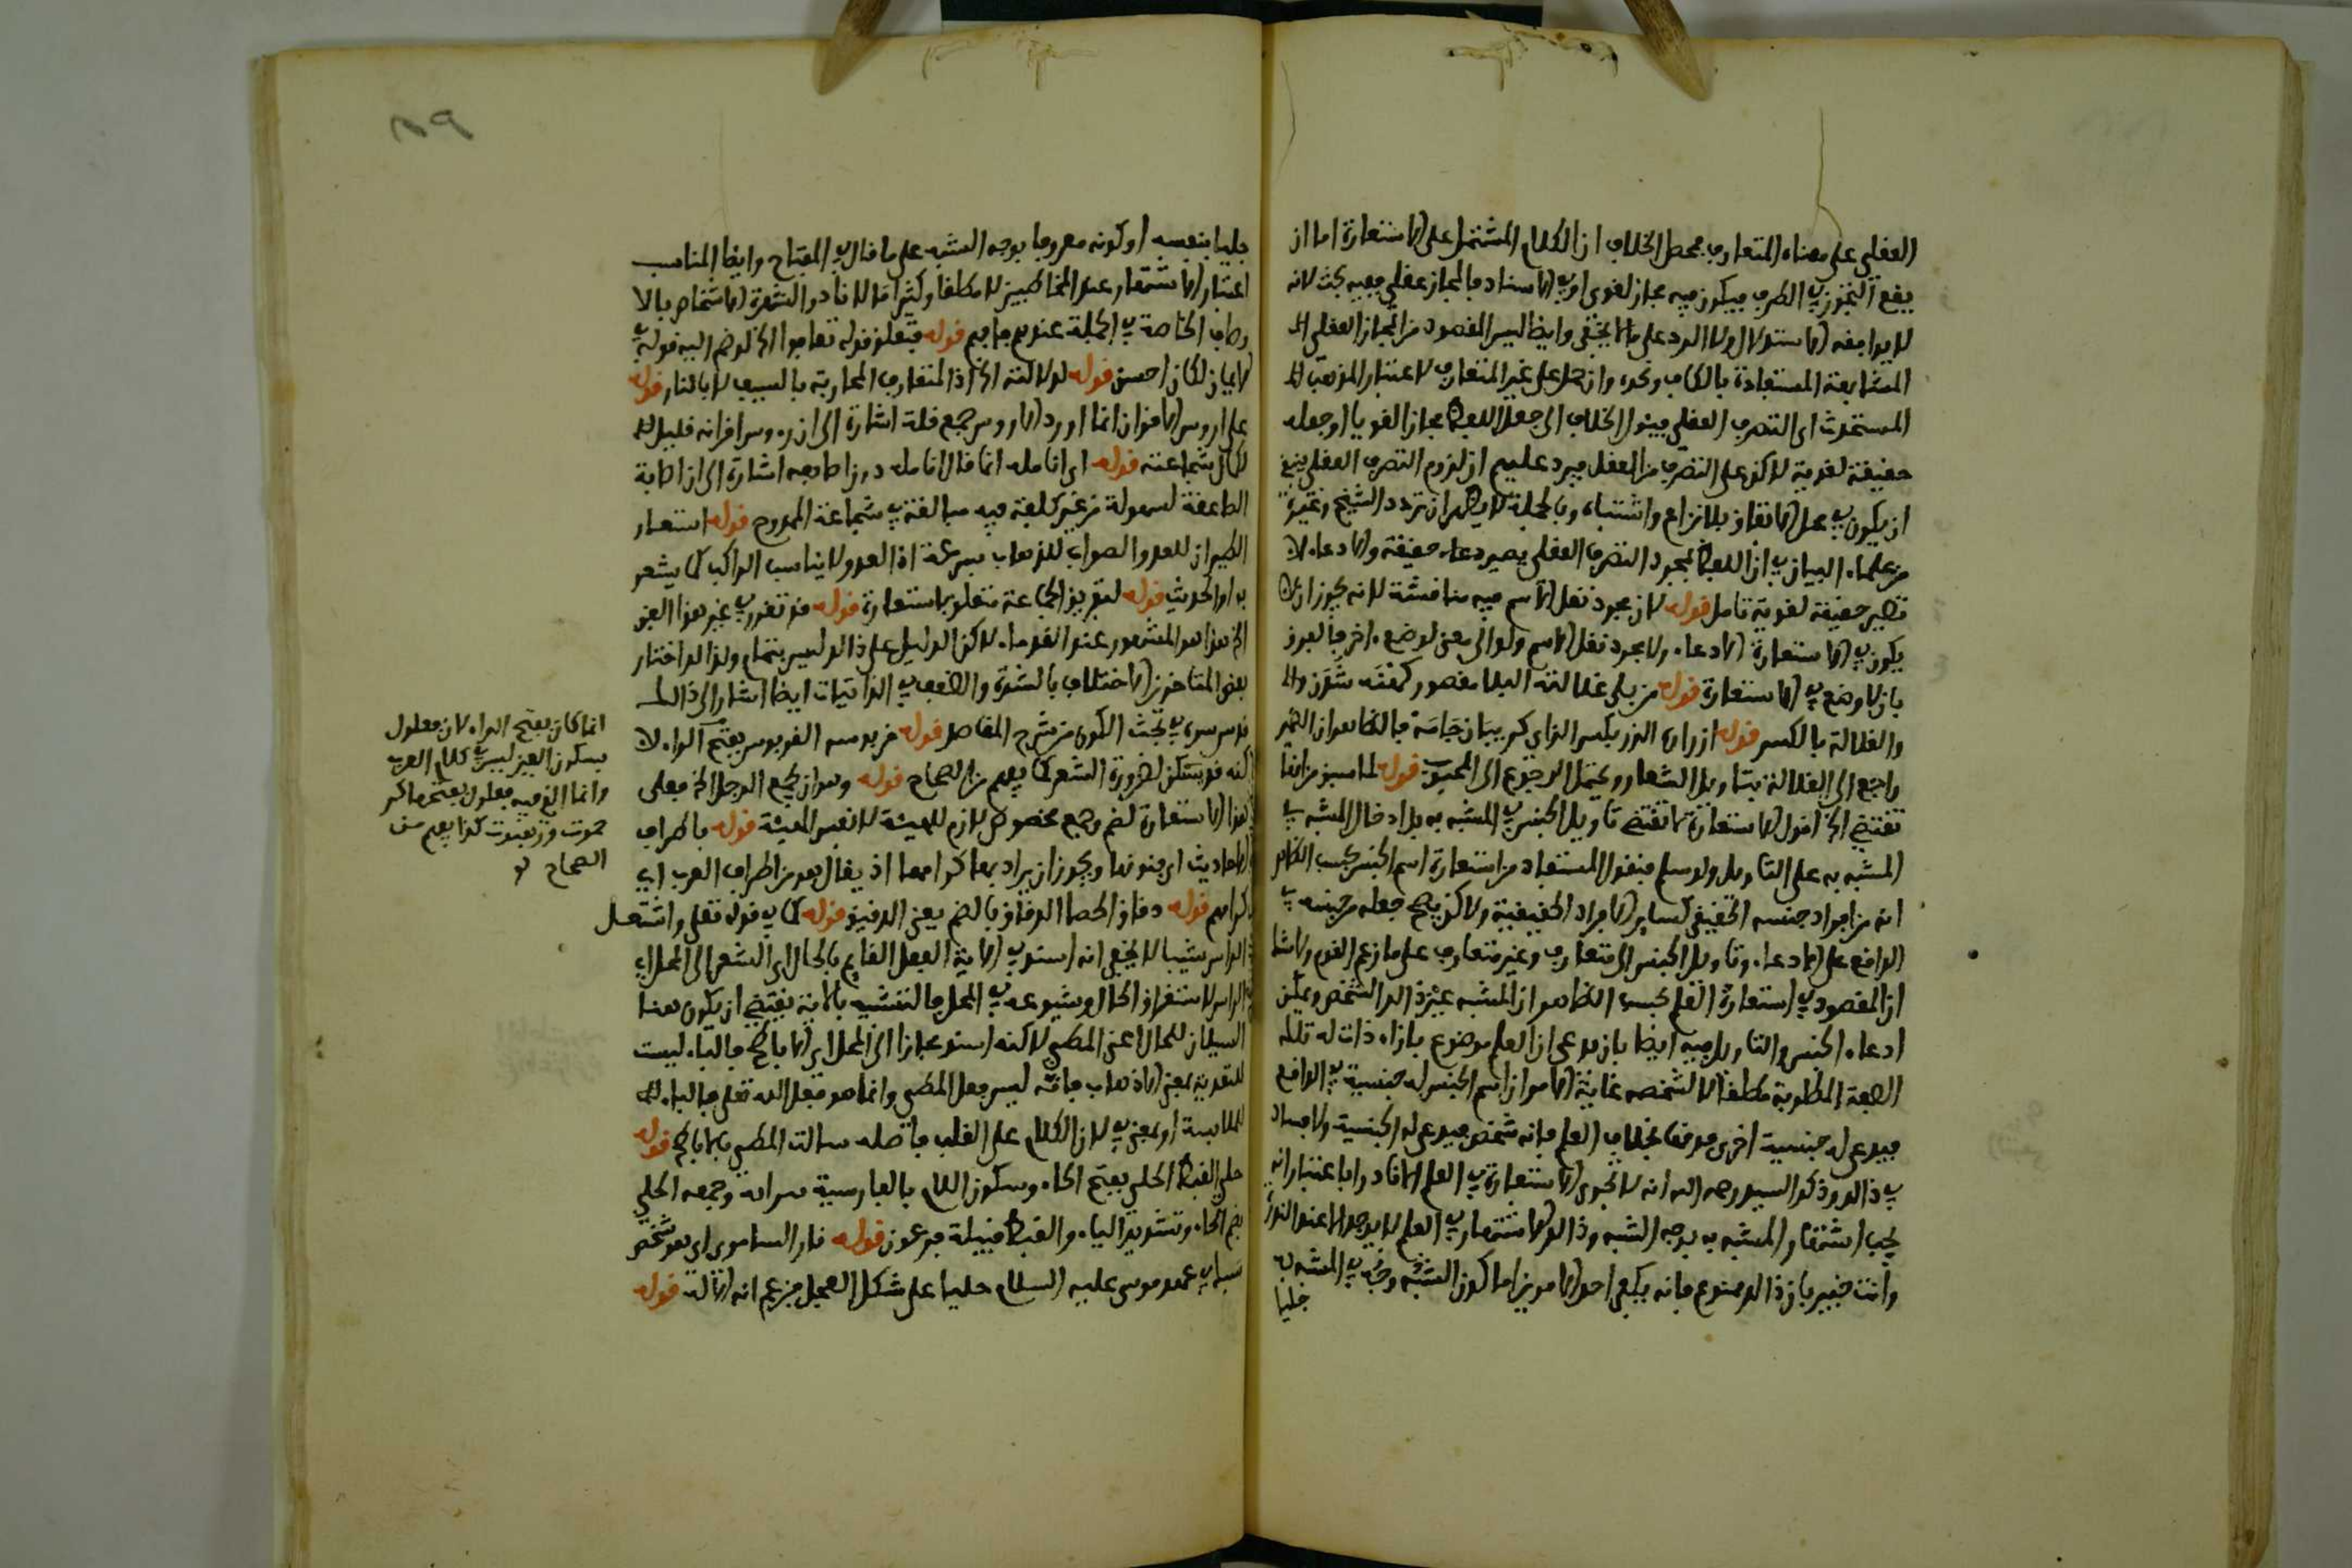 العقلي على معناه المتعارف محط الخلاف ان الكلام المشتمل على الاستعارة اما ان
يقع التجوز في الطرف فيكون فيه مجاز لغوي او في الاسناد فالمجاز عقلي ففيه بحث لانه
لا يوافقه الاستدلال ولا الرد على ما لا يخفى وايضا ليس المقصود من المجاز العقلي الا
المشابهة المستفادة بالكاف ونحوه وان حمل على غير المتعارف لاعتبار المذهب
المستحدث اي التصرف العقلي فيئول الخلاف الى جعل اللفظ مجازا لغويا او جعله
حقيقة لغوية لاكن على التصرف من العقل فيرد عليهم ان لزوم التصرف العقلي ينبغي
ان يكون في محل الاتفاق بلا نزاع واشتباه وبالجملة لا يظهر ان تردد الشيخ وغيره
من علماء البيان في ان اللفظ بمجرد التصرف العقلي يصير دعاء حقيقة والادعاء لا
تصير حقيقة لغوية تامل قوله لان مجرد نقل الاسم فيه مناقشة لانه يجوز ان لا
يكون في الاستعارة الادعاء ولا مجرد نقل الاسم ولو الى معنى لوضع اخر
بان لا وضع في الاستعارة قوله من بلى غلالته البلا مقصور
والغلالة بالكسر قوله ازراره الزر بكسر الزاي
راجع الى الغلالة بتاويل الشعار ويحتمل الرجوع الى المحبوب قوله لما سبق من انها
تقتضي الخ اقول الاستعارة انما تقتضي تاويل الجنس في المشبه به بل ادخال المشبه في
المشبه به على التاويل ولو سلم فنقول المستفاد من استعارة اسم الجنس بحسب الظاهر
انه من افراد جنسه الحقيقي كساير الافراد الحقيقية ولاكن يصح جعله من جنسه في
الواقع على الادعاء وتاويل الجنس الى متعارف وغير متعارف على ما زعم القوم ولا شك
ان المقصود في استعارة العلم بحسب الظاهر ان المشبه عين ذالك الشخص ويمكن
ادعاء الجنس والتاويل فيه ايضا بان يدعى ان العلم موضوع بازاء ذات له تلك
الصفة المطلوبة مطلقا لا لشخصه غاية الامر ان اسم الجنس له جنسية في الواقع
فيدعى له جنسية اخرى فوقها بخلاف العلم فانه شخص فيدعى له الجنسية ولا فساد
في ذالك وذكر السيد رحمه الله انه لا تجري الاستعارة في العلم الا نادرا باعتبار انه
يجب اشتهار المشبه به بوجه الشبه وذالك الاشتهار في العلم لا يوجد الا عند الندرة
وانت خبير بان ذالك ممنوع فانه يكفي احد الامرين اما كون الشبه وجه في المشبه به
جليا
جليا بنفسه او كونه معروفا بوجه الشبه على ما قال في المفتاح وايضا المناسب
اعتبار الاشتهار عند المخاطبين لا مطلقا وكثيرا ما لا نادر الشهرة الاشخاص بالا
وصاف الخاصة في الجملة عندهم فافهم قوله فتعلق قوله تعافوا الخ لو ضم اليه قوله في
الايمان لكان احسن قوله لدلالته الخ اذ المتعارف المحاربة بالسيف لا بالنار قوله
على ارءوس الاقران انما اورد الارءوس جمع قلة اشارة الى ان رءوس اقرانه قليل
لكمال شجاعته قوله اي انامله انما قال انامله دون اصابعه اشارة الى ان اصابة
الصاعقة لسهولة من غير كلفة فيه مبالغة في شجاعة الممدوح قوله استعار
الطيران للعدو والصواب للذهاب بسرعة اذ العدو لا يناسب الراكب كما يشعر
به اول الحديث قوله لتفريق الجماعة متعلق باستعارة قوله قد تقرر في غير هذا الفن
الخ هذا هو المشهور عند القدماء لاكن الدليل على ذالك ليس بتمام ولذالك اختار
بعض المتاخرين الاختلاف بالشدة والضعف في الذاتيات ايضا اشار الى ذالك
قدس سره في بحث الكون من شرح المفاصل قوله قربوسه القربوس بفتح الراء لا
لاكنه قد يسكن لضرورة الشعر كما يفهم من الصحاح قوله وهو ان يجمع الرجل الخ فعلى
هذا الاستعارة لضم وجمع مخصوص لازم للهيئة لا نفس الهيئة قوله باطراف
الاحاديث اي فنونها ويجوز ان يراد بها كرامها اذ يقال هو من اطراف العرب اي
كرامهم قوله دقاق الحصا الدقاق بالضم يعنى الدقيق قوله كما في قوله تعلى واشتعل
الراس شيبا لا يخفى انه اسند في الاية الفعل القايم بالحال اي الشعر الى المحل اي
الراس لاستغراق الحال وشيوعه في المحل فالتشبيه بالاية يقتضي ان يكون هنا
السيلان للحال اعني المطي لاكنه اسند مجازا الى المحل اي الاباطح فالباء ليست
للتعدية بمعنى الاذهاب فانه ليس فعل المطي وانما هو فعل الله تعلى فالباء
للملابسة او بمعنى في لان الكلام على القلب فاصله سالت المطي بالاباطح قوله
حلي القبط الحلي بفتح الحاء وسكون اللام بالفارسية سرايه وجمعه الحلي
بضم الحاء وتشديد الياء والقبط قبيلة فرعون قوله نار السامري اي هو شخص
سباك في عهد موسى عليه السلام حليا على شكل العجل فزعم انه الاله قوله
انما كان بفتح الراء لان فعلول
بسكون العين ليس في كلام العرب
وانما الذي فيه فعلول بفتحها كر
حموت وزبغوت كذا يفهم من
الصحاح